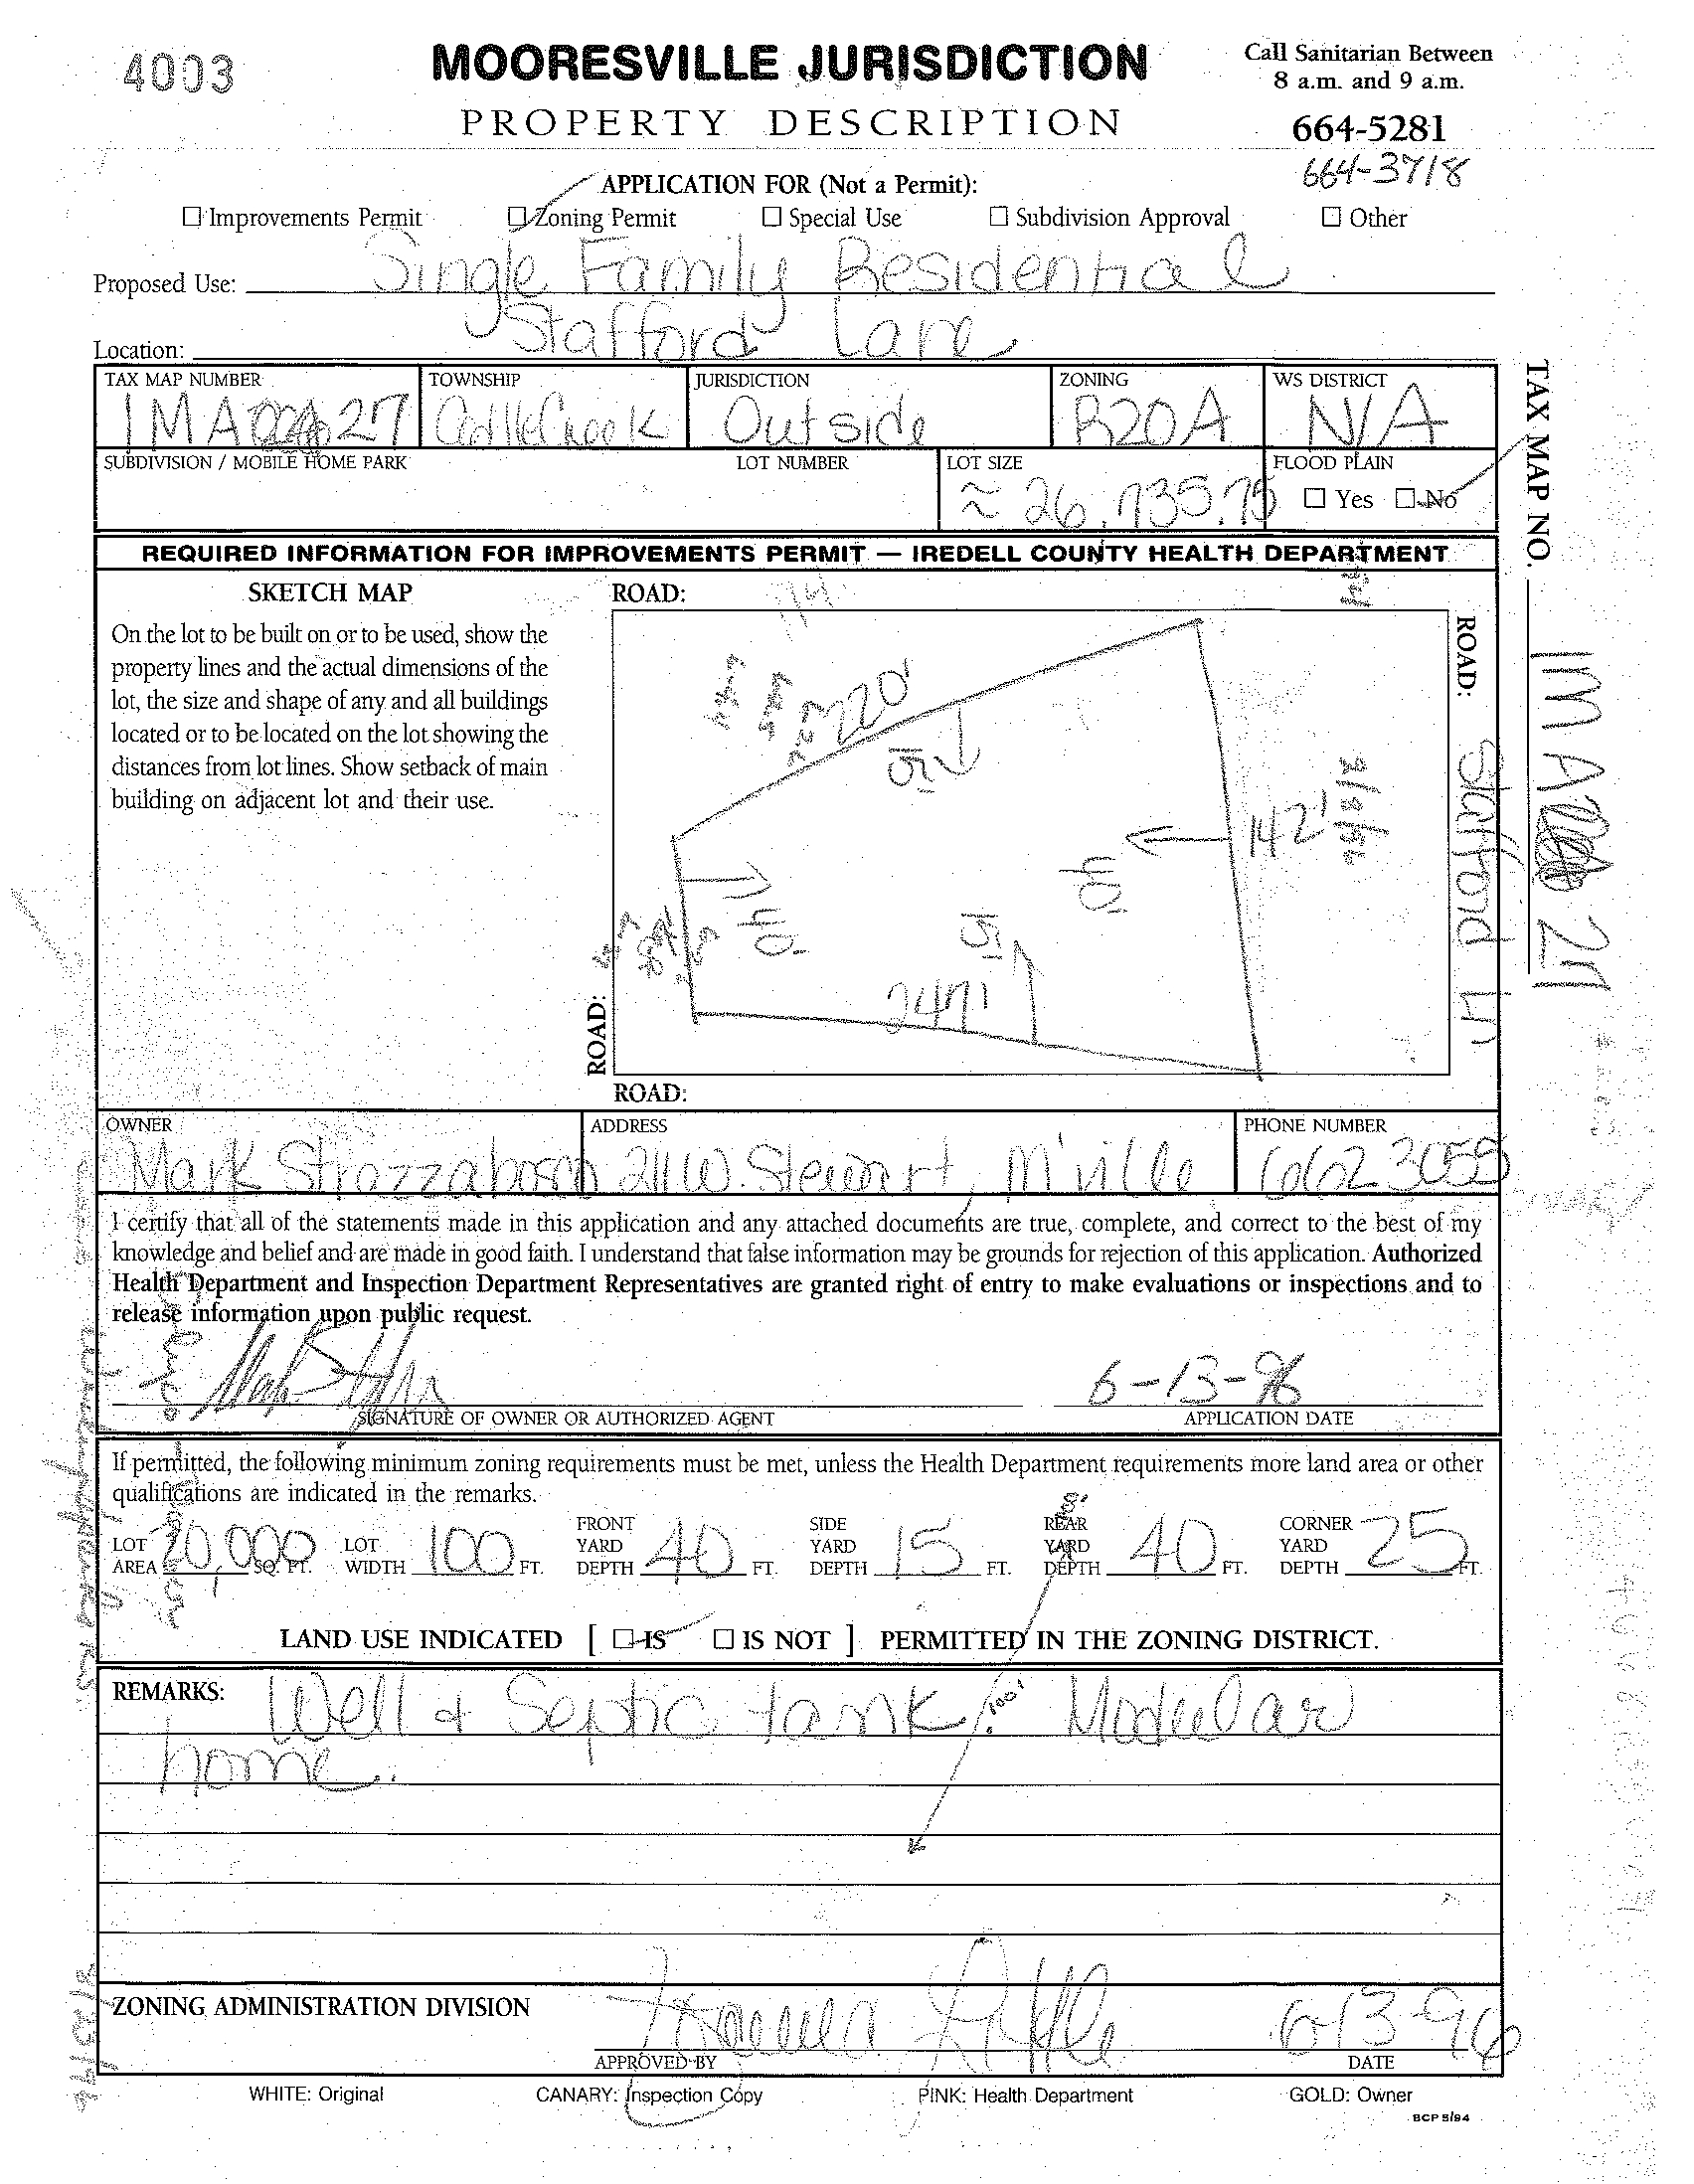 4003
MOORESVILLE JURISDICTION
PROPERTY DESCRIPTION
Call Sanitarian Between
8 a.m. and 9 a.m.
664-5281
664-3718
APPLICATION FOR (Not a Permit):
☐ Improvements Permit ☐ Zoning Permit ☐ Special Use ☐ Subdivision Approval ☐ Other
Proposed Use: Single Family Residential
Location: Stafford Lane
TAX MAP NUMBER TOWNSHIP JURISDICTION ZONING WS DISTRICT
1MA 27 Outside R20A N/A
SUBDIVISION / MOBILE HOME PARK LOT NUMBER LOT SIZE FLOOD PLAIN
≈ 26,735.75 ☐ Yes ☐ No
TAX MAP NO. 1MA 27
REQUIRED INFORMATION FOR IMPROVEMENTS PERMIT — IREDELL COUNTY HEALTH DEPARTMENT
SKETCH MAP
On the lot to be built on or to be used, show the
property lines and the actual dimensions of the
lot, the size and shape of any and all buildings
located or to be located on the lot showing the
distances from lot lines. Show setback of main
building on adjacent lot and their use.
ROAD:
220'
15'
142'
40'
40'
15'
247'
ROAD: Stafford Ln
ROAD:
ROAD:
OWNER ADDRESS PHONE NUMBER
Mark 211 W. Stewart, M'ville 662 3055
I certify that all of the statements made in this application and any attached documents are true, complete, and correct to the best of my
knowledge and belief and are made in good faith. I understand that false information may be grounds for rejection of this application. Authorized
Health Department and Inspection Department Representatives are granted right of entry to make evaluations or inspections and to
release information upon public request.
6-13-96
SIGNATURE OF OWNER OR AUTHORIZED AGENT APPLICATION DATE
If permitted, the following minimum zoning requirements must be met, unless the Health Department requirements more land area or other
qualifications are indicated in the remarks.
LOT AREA 20,000 SQ. FT. LOT WIDTH 100 FT. FRONT YARD DEPTH 40 FT. SIDE YARD DEPTH 15 FT. REAR YARD DEPTH 40 FT. CORNER YARD DEPTH 25 FT.
LAND USE INDICATED [ ☐ IS ☐ IS NOT ] PERMITTED IN THE ZONING DISTRICT.
REMARKS: Well + Septic tank. Modular
home.
ZONING ADMINISTRATION DIVISION
6-13-96
APPROVED BY DATE
WHITE: Original CANARY: Inspection Copy PINK: Health Department GOLD: Owner
BCP 5/94